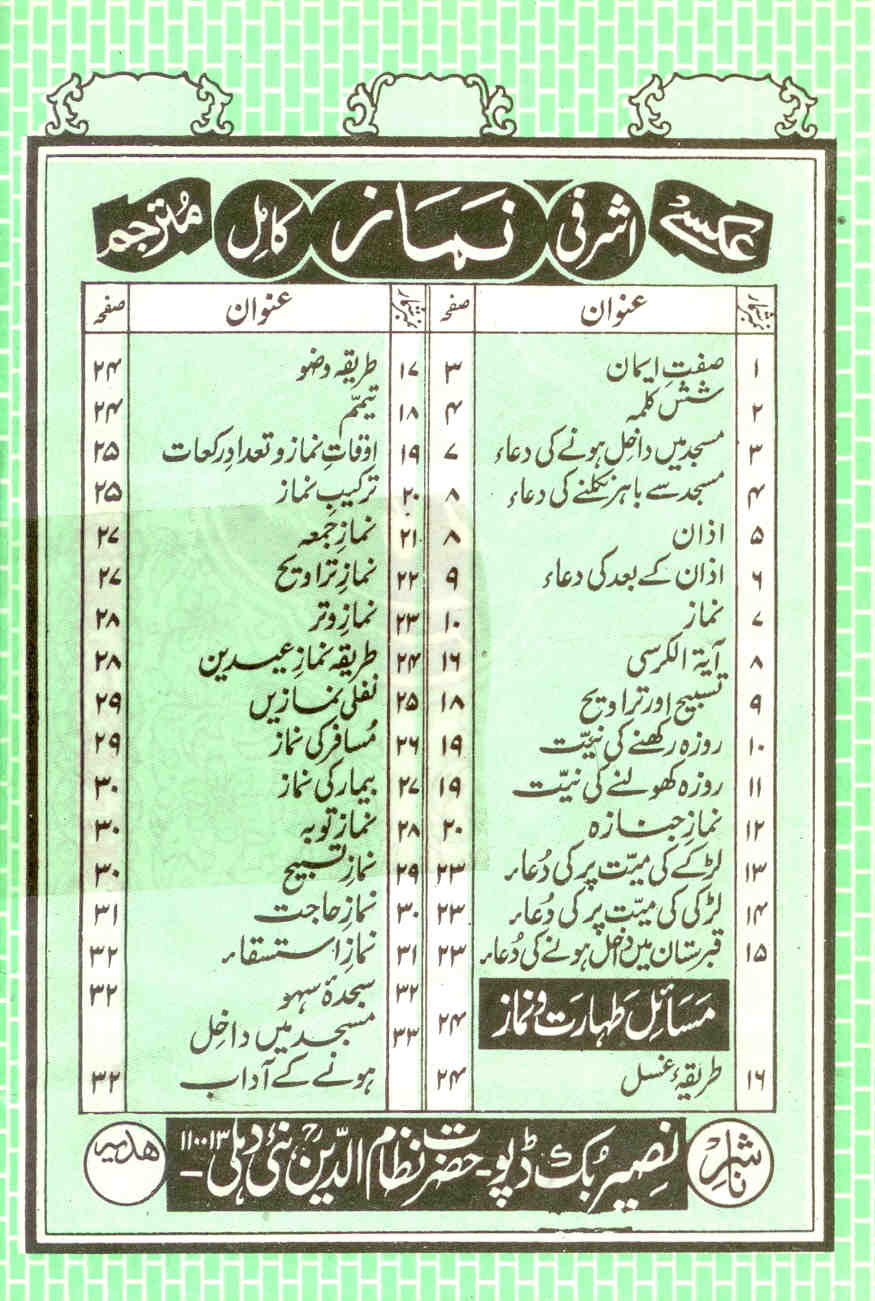 عکسی اشرفی نَمَاز کامِل مُترجم
نمبرشمار عنوان صفحہ
۱ صفتِ ایمان ۳
۲ شش کلمہ ۴
۳ مسجد میں داخل ہونے کی دعاء ۷
۴ مسجد سے باہر نکلنے کی دعاء ۸
۵ اذان ۸
۶ اذان کے بعد کی دعاء ۹
۷ نماز ۱۰
۸ آیۃ الکرسی ۱۶
۹ تسبیح اور تراویح ۱۸
۱۰ روزہ رکھنے کی نیّت ۱۹
۱۱ روزہ کھولنے کی نیّت ۱۹
۱۲ نمازِ جنازہ ۲۰
۱۳ لڑکے کی میّت پر کی دُعاء ۲۳
۱۴ لڑکی کی میّت پر کی دُعاء ۲۳
۱۵ قبرستان میں داخل ہونے کی دُعاء ۲۳
مَسَائِل طَہارَت و نماز ۲۴
۱۶ طریقۂ غسل ۲۴
نمبرشمار عنوان صفحہ
۱۷ طریقہ وضو ۲۴
۱۸ تیمّم ۲۴
۱۹ اوقاتِ نماز و تعدادِ رکعات ۲۵
۲۰ ترکیبِ نماز ۲۵
۲۱ نمازِ جمعہ ۲۷
۲۲ نمازِ تراویح ۲۷
۲۳ نمازِ وتر ۲۸
۲۴ طریقہ نمازِ عیدین ۲۸
۲۵ نفلی نمازیں ۲۹
۲۶ مُسافر کی نماز ۲۹
۲۷ بیمار کی نماز ۳۰
۲۸ نمازِ توبہ ۳۰
۲۹ نمازِ تسبیح ۳۰
۳۰ نمازِ حاجت ۳۱
۳۱ نمازِ استسقاء ۳۲
۳۲ سجدۂ سہو ۳۲
۳۳ مسجد میں داخل
ہونے کے آداب ۳۲
ناشر نصیر بُک ڈپو۔ حضرت نظام الدّینؒ نئی دہلی ۱۱۰۰۱۳ ھدیہ